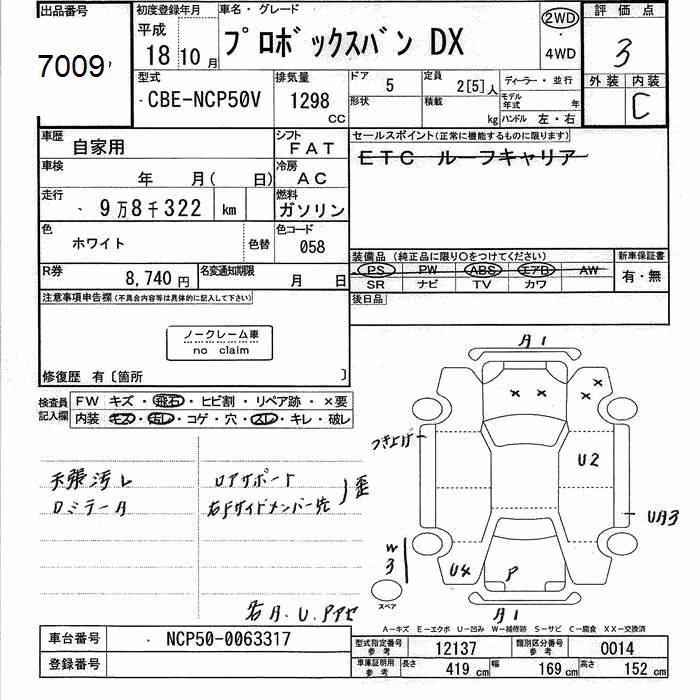 出品番号
7009
初度登録年月
平成
18年10月
車名・グレード
プロボックスバン DX
2WD
・
4WD
評価点
3
外装 内装
C
型式
CBE-NCP50V
排気量
1298
CC
ドア
5
定員
2[5]人
形状
積載
kg
ディーラー・並行
モデル年式 年
ハンドル 左・右
車歴
自家用
シフト
FAT
車検
年 月( 日)
冷房
AC
走行
9万8千322 km
燃料
ガソリン
色
ホワイト
色替
色コード
058
R券
8,740円
名変通知期限
月 日
セールスポイント(正常に機能するものに限ります)
ETC ルーフキャリア
装備品(純正品に限り○をつけてください)
PS PW ABS エアB AW
SR ナビ TV カワ
新車保証書
有・無
後日品
注意事項申告欄(不具合内容等は具体的に記入して下さい)
ノークレーム車
no claim
修復歴 有〔箇所 〕
検査員
記入欄
FW キズ・飛石・ヒビ割・リペア跡・×要
内装 キズ・汚レ・コゲ・穴・スレ・キレ・破レ
天張汚レ
ロアサポート
右Fサイドメンバー先
歪
A1
つき上げ
U2
UA3
W3
U4
P
A1
スペア
A-キズ E-エクボ U-凹み W-補修跡 S-サビ C-腐食 XX-交換済
車台番号
NCP50-0063317
登録番号
型式指定番号
参考
12137
類別区分番号
参考
0014
車庫証明用
参考
長さ 419 cm
幅 169 cm
高さ 152 cm